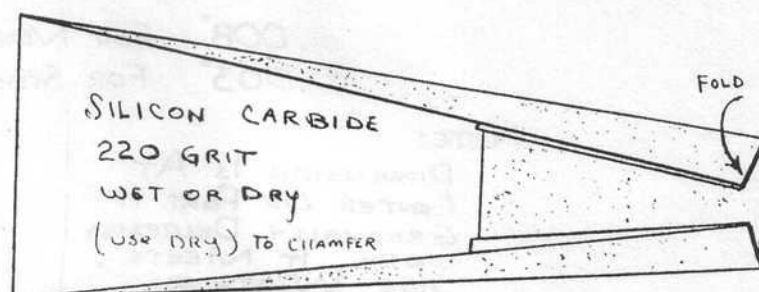 FOLD
SILICON CARBIDE
220 GRIT
WET OR DRY
(USE DRY) TO CHAMFER